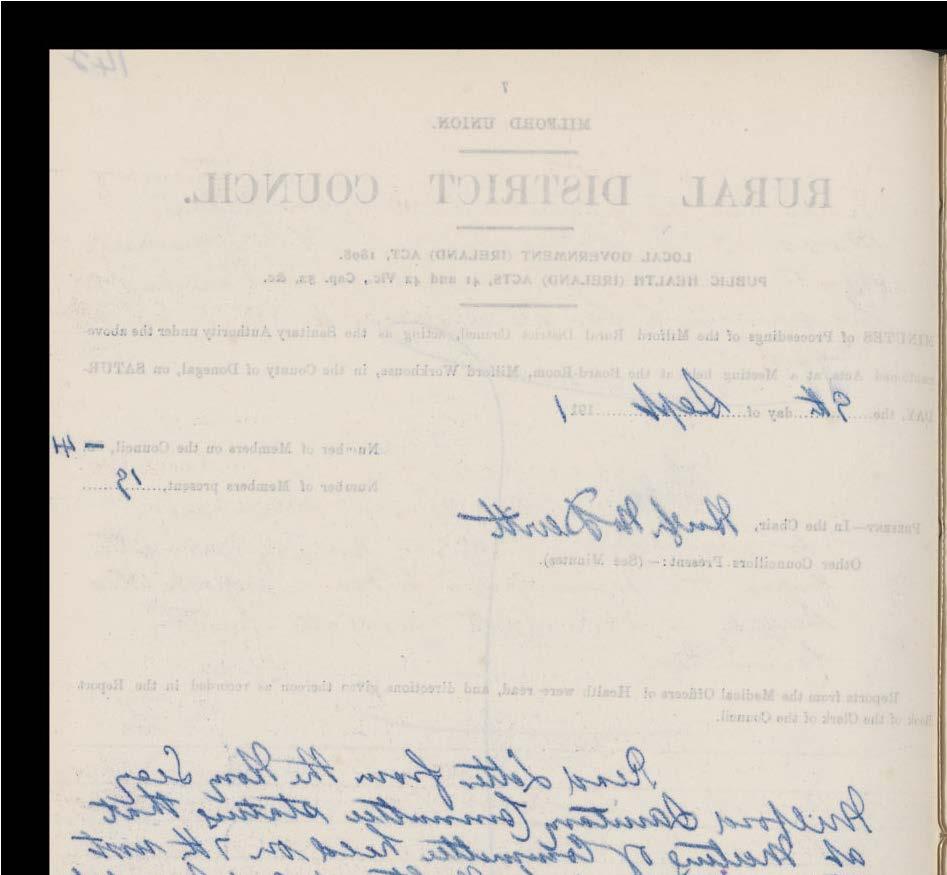 142
7
MILFORD UNION.
RURAL DISTRICT COUNCIL.
LOCAL GOVERNMENT (IRELAND) ACT, 1898.
PUBLIC HEALTH (IRELAND) ACTS, 41 and 42 Vic., Cap. 52, &c.
MINUTES of Proceedings of the Milford Rural District Council, acting as the Sanitary Authority under the above
mentioned Acts, at a Meeting held at the Board-Room, Milford Workhouse, in the County of Donegal, on SATUR-
DAY, the 9th day of Sept 1911
Number of Members on the Council, — 41
Number of Members present, 19
PRESENT—In the Chair, Hugh
Other Councillors Present:—(See Minutes).
Reports from the Medical Officers of Health were read, and directions given thereon as recorded in the Report
Book of the Clerk of the Council.
Read Letter from the Hon Secy
Milford Sanitary Committee stating that
at Meeting of Committee held on 7th inst